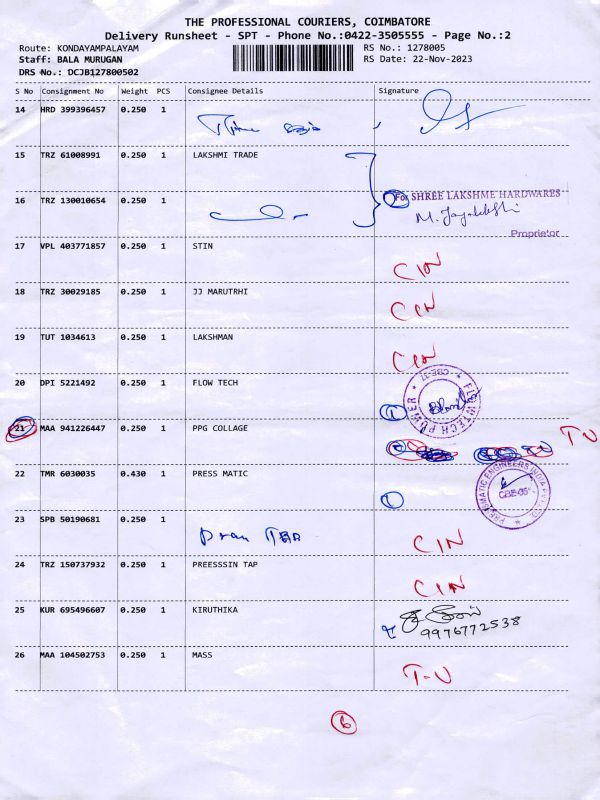 THE PROFESSIONAL COURIERS, COIMBATORE
Delivery Runsheet - SPT - Phone No.:0422-3505555 - Page No.:2
Route: KONDAYAMPALAYAM RS No.: 1278005
Staff: BALA MURUGAN RS Date: 22-Nov-2023
DRS No.: DCJB127800502
S No Consignment No Weight PCS Consignee Details Signature
14 HRD 399396457 0.250 1
15 TRZ 61008991 0.250 1 LAKSHMI TRADE
16 TRZ 130010654 0.250 1
For SHREE LAKSHME HARDWARES
Proprietor
17 VPL 403771857 0.250 1 STIN CIN
18 TRZ 30029185 0.250 1 JJ MARUTRHI CIN
19 TUT 1034613 0.250 1 LAKSHMAN CIN
20 DPI 5221492 0.250 1 FLOW TECH
FLOWTECH POWER CBE-11
21 MAA 941226447 0.250 1 PPG COLLAGE TU
22 TMR 6030035 0.430 1 PRESS MATIC
23 SPB 50190681 0.250 1 CIN
24 TRZ 150737932 0.250 1 PREESSSIN TAP CIN
25 KUR 695496607 0.250 1 KIRUTHIKA
9976772538
26 MAA 104502753 0.250 1 MASS T-U
6